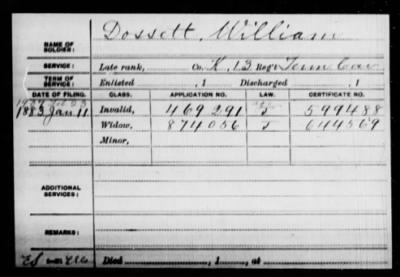 Dossett, William
NAME OF
SOLDIER:
SERVICE: Late rank, Co. K, 13 Reg't Tenn Cav
TERM OF
SERVICE: Enlisted , 1 Discharged , 1
DATE OF FILING. CLASS. APPLICATION NO. LAW. CERTIFICATE NO.
1883 Jan 11 Invalid, 469 291 599488
Widow, 874056 644569
Minor,
ADDITIONAL
SERVICES:
REMARKS:
Died , 1 , at